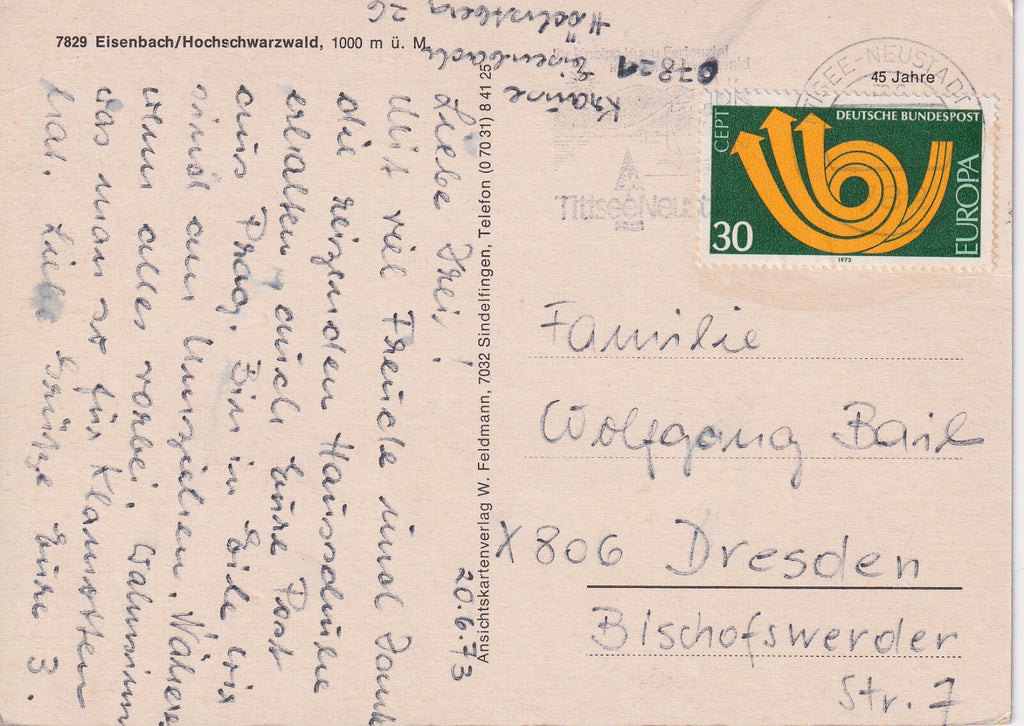 7829 Eisenbach/Hochschwarzwald, 1000 m ü. M.
Krause
07821 Eisenbach
Höchstberg 26
20.6.73
Liebe Drei!
Mit viel Freude und Dank
die reizenden Hausschuhe
erhalten, auch Eure Post
aus Prag. Bin in Eile wir
sind am Umziehen. Näheres
wenn alles vorbei. Wahnsinn
was man so für Klamotten
hat. Liebe Grüße Eure 3.
Ansichtskartenverlag W. Feldmann, 7032 Sindelfingen, Telefon (0 70 31) 8 41 25
45 Jahre
TITISEE-NEUSTADT
Titisee Neust
CEPT
DEUTSCHE BUNDESPOST
EUROPA
30
1973
Familie
Wolfgang Bail
X806 Dresden
Bischofswerder
Str. 7